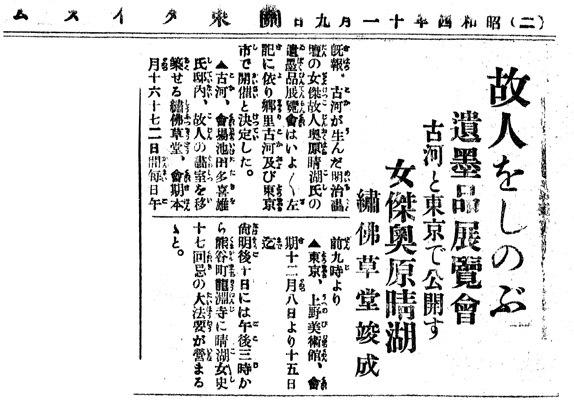 (二) 昭和四年十一月九日 關東タイムス
故人をしのぶ
遺墨品展覽會
古河と東京で公開す
女傑奧原晴湖
繡佛草堂竣成
既報、古河が生んだ明治畫
壇の女傑故人奧原晴湖氏の
遺墨品展覽會はいよ〳〵左
記に依り郷里古河及び東京
市で開催と決定した。
▲古河、會場池田多喜雄
氏邸内、故人の畵室を移
築せる繡佛草堂、會期本
月十六十七二日間每日午
前九時より
▲東京、上野美術館、會
期十二月八日より十五日
迄
尙明後十日には午後三時か
ら熊谷町龍淵寺に晴湖女史
十七回忌の大法要が營まる
ゝと。